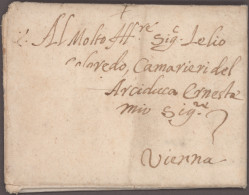 Al Molto Ill.re Sig.r Lelio
Colaredo, Camarieri del
Arciduca Ernesto
mio Sig.re
Vienna